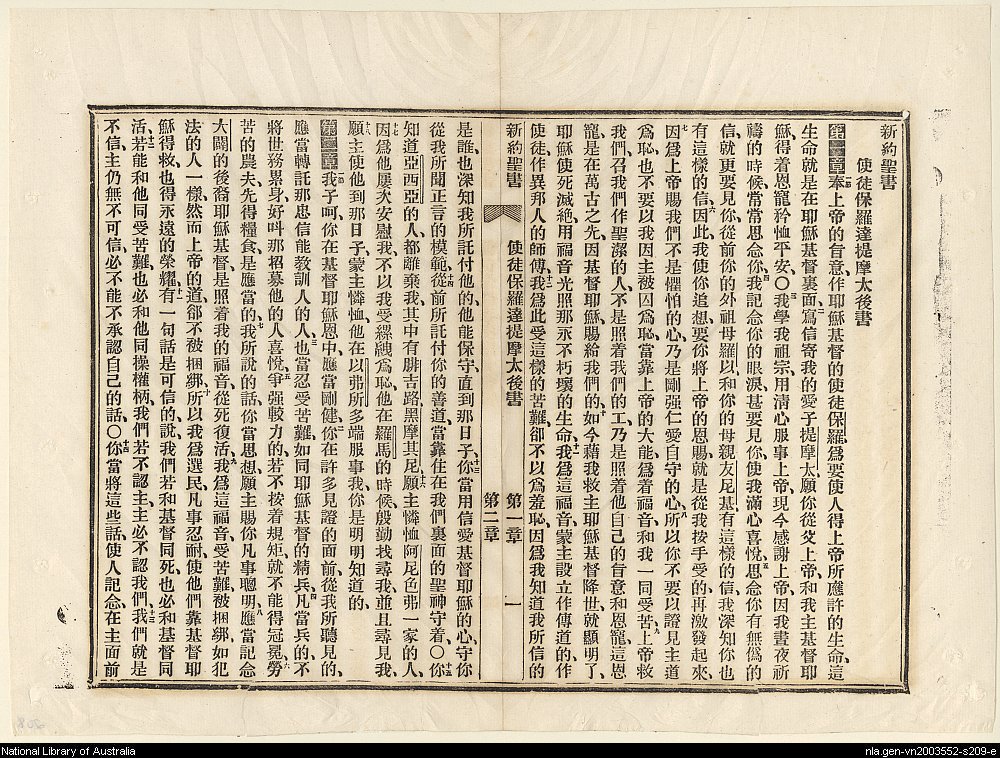 新約聖書
使徒保羅達提摩太後書
第一章奉上帝的旨意、作耶穌基督的使徒保羅、爲要使人得上帝所應許的生命、這
生命就是在耶穌基督裏面、寫信寄我的愛子提摩太、願你從父上帝、和我主基督耶
穌得着恩寵矜恤平安、〇我學我祖宗用清心服事上帝、現今感謝上帝、因我晝夜祈
禱的時候、常常思念你、我記念你的眼淚、甚要見你、使我滿心喜悅、思念你有無僞的
信、就更要見你、從前你的外祖母羅以、和你的母親友尼基、有這樣的信、我深知你也
有這樣的信、因此我使你追想、要你將上帝的恩賜、就是從我按手受的、再激發起來、
因爲上帝賜我們不是懼怕的心、乃是剛强仁愛自守的心、所以你不要以證見主道
爲恥、也不要以我因主被囚爲恥、當靠上帝的大能、爲着福音、和我一同受苦、上帝救
我們、召我們作聖潔的人、不是照着我們的工、乃是照着他自己的旨意和恩寵、這恩
寵是在萬古之先、因基督耶穌賜給我們的、如今藉我救主耶穌基督降世就顯明了、
耶穌使死滅絕、用福音光照那永不朽壞的生命、我爲這福音、蒙主設立作傳道的、作
使徒、作異邦人的師傅、我爲此受這樣的苦難、卻不以爲羞恥、因爲我知道我所信的
新約聖書 使徒保羅達提摩太後書 第一章 第二章 一
是誰、也深知我所託付他的、他能保守直到那日子、你當用信愛基督耶穌的心、守你
從我所聞正言的模範、從前所託付你的善道、當靠住在我們裏面的聖神守着、〇你
知道亞西亞的人、都離棄我、其中有腓吉路黑摩其尼、願主憐恤阿尼色弗一家的人、
因爲他屢次安慰我、不以我受縲絏爲恥、他在羅馬的時候、殷勤找尋我、並且尋見我、
願主使他到那日子、蒙主憐恤、他在以弗所多端服事我、你是明明知道的、
第二章我子呵、你在基督耶穌恩中、應當剛健、你在許多見證的面前、從我所聽見的、
應當轉託那忠信能敎訓人的人、也當忍受苦難、如同耶穌基督的精兵、凡當兵的、不
將世務累身、好呌那招募他的人喜悅、爭强較力的、若不按着規矩、就不能得冠冕、勞
苦的農夫、先得糧食、是應當的、我所說的話、你當思想、願主賜你凡事聰明、應當記念
大闢的後裔耶穌基督、是照着我的福音、從死復活、我爲這福音、受苦難、被捆綁、如犯
法的人一樣、然而上帝的道、卻不被捆綁、所以我爲選民、凡事忍耐、使他們靠基督耶
穌得救、也得永遠的榮耀、有一句話是可信的、說我們若和基督同死、也必和基督同
活、若能和他同受苦難、也必和他同操權柄、我們若不認主、主必不認我們、我們就是
不信、主仍無不可信、必不能不承認自己的話、〇你當將這些話、使人記念、在主面前
National Library of Australia
nla.gen-vn2003552-s209-e